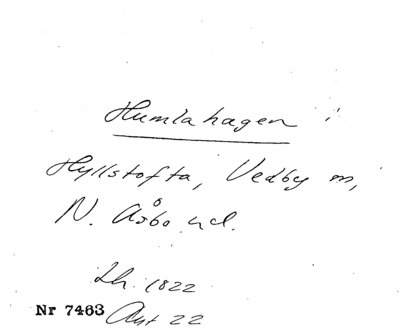 Humlahagen i
Hyllstofta, Vedby sn,
N. Åsbo hd.
Lh. 1822
Nr 7463 Akt 22